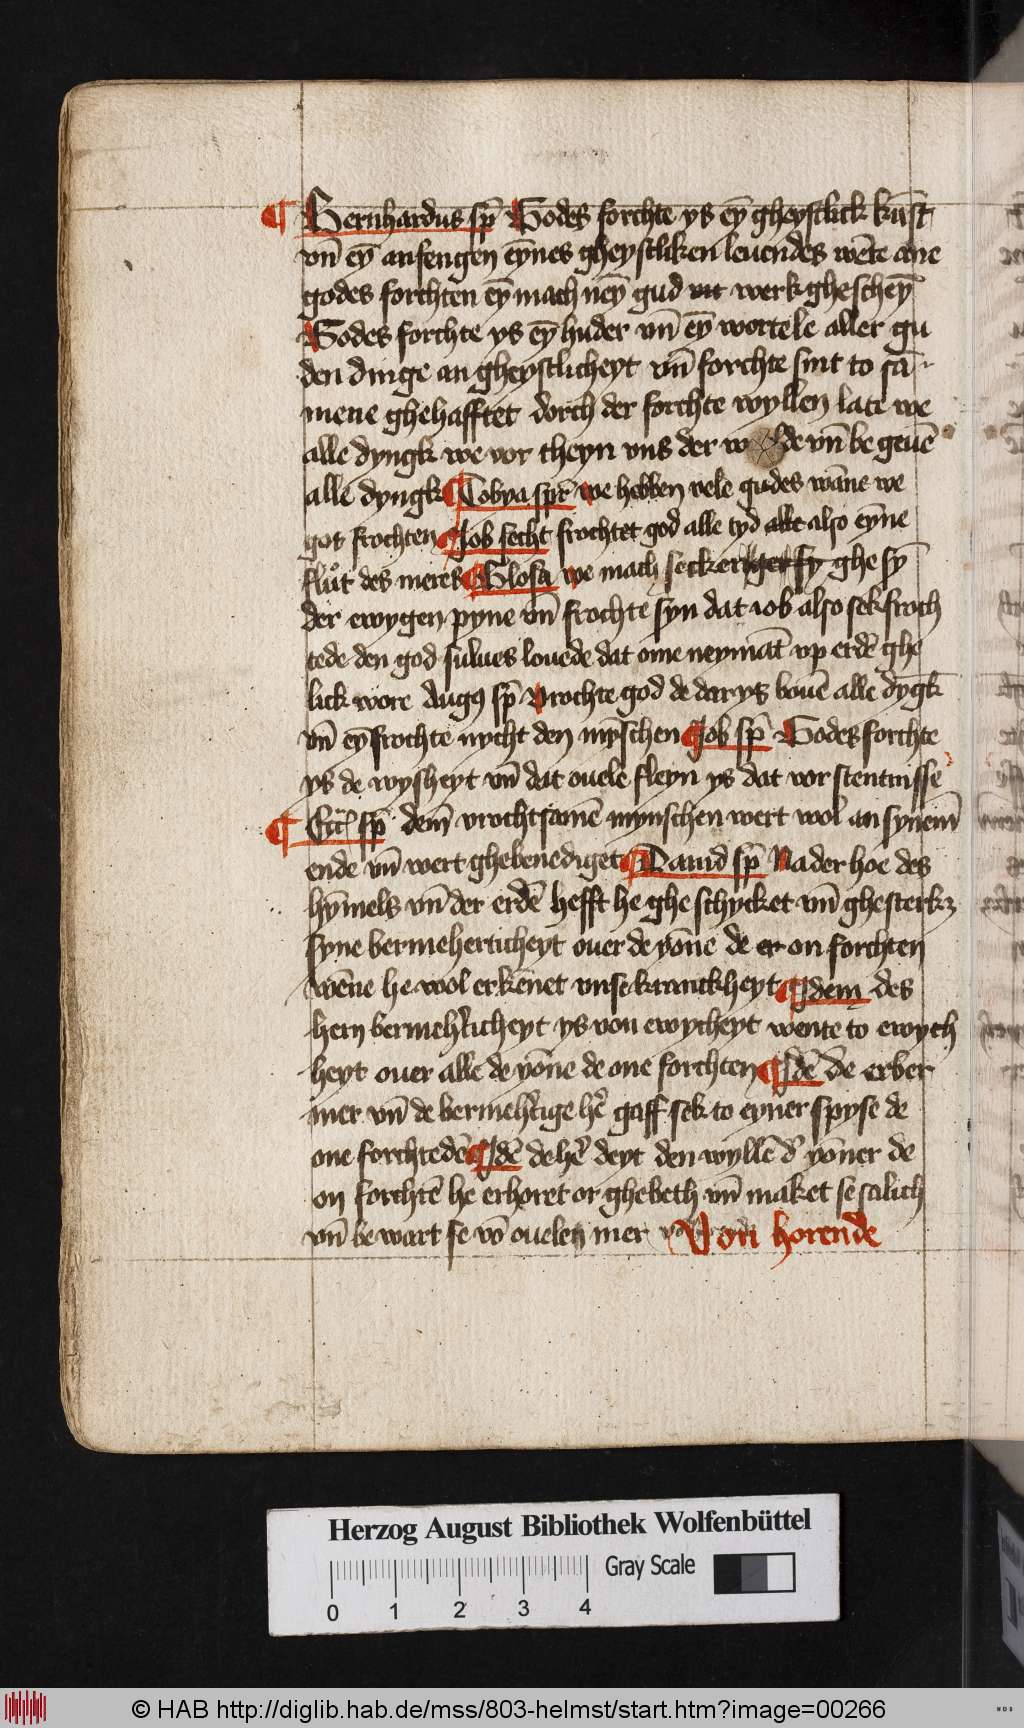 ¶ Bernhardus sp̄ Godes forchte ys eȳ gheystlick kūst
vn̄ eȳ anfengen eȳnes gheystliken leuendes wēte ane
godes forchten eȳ mach neȳ gud werk ghescheȳ
Godes forchte ys eȳ huder vn̄ eȳ wortele aller gu
den dinge an gheystlicheyt vn̄ forchte sint to sā
mene ghehafftet dorch der forchte wyllen late we
alle dyngk we vor theyn vns der w lde vn̄ be geuē
alle dyngk ¶ Tobya spr̄ we hebben vele gudes wāne we
got frochten ¶ Job secht frochtet god alle tyd also eȳne
flůt des meres ¶ Glosa we mach secker ghe sȳ
der ewygen pyne vn̄ frochte syn dat iob also sek froch
tede den god sulues louede dat ome neymāt vp erdē ghe
lick wore Augꝰ sp̄ Vrochte god de dar ys bouē alle dȳgk
vn̄ eȳ frochte nycht den mȳschen ¶ Job sp̄ Godes forchte
ys de wysheyt vn̄ dat ouele fleyn ys dat vor stentnisse
¶ Ecc̄l sp̄ dem̄ vrochtsamē mynschen wert wol an synem̄
ende vn̄ wert ghebenediget ¶ Dauid sp̄ Na der hoe des
hȳmels vn̄ der erdē hefft he ghe schycket vn̄ ghesterkꝫ
syne bermeherticheyt ouer de yōne de er on forchten
wēne he wol erkēnet vnse kranckheyt ¶ Idem des
hern bermeh̄ticheyt ys von ewycheyt wente to ewych
heyt ouer alle de yōne de one forchten ¶ Idē De erber
mer vn̄ de bermeh̄tige hē gaff sek to eyner spyse de
one forchtedē ¶ Idē de hē deyt den wyllē d̄ yōner de
on forchtē he erhoret or ghebeth vn̄ maket se salich
vn̄ be wart se vō ouelen mer Von horende
Herzog August Bibliothek Wolfenbüttel
0 1 2 3 4 Gray Scale
© HAB http://diglib.hab.de/mss/803-helmst/start.htm?image=00266